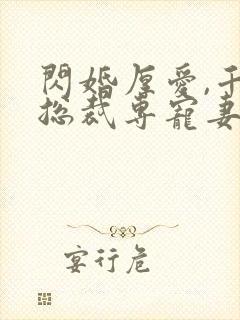 閃婚厚愛,
總裁專寵妻
宴行危